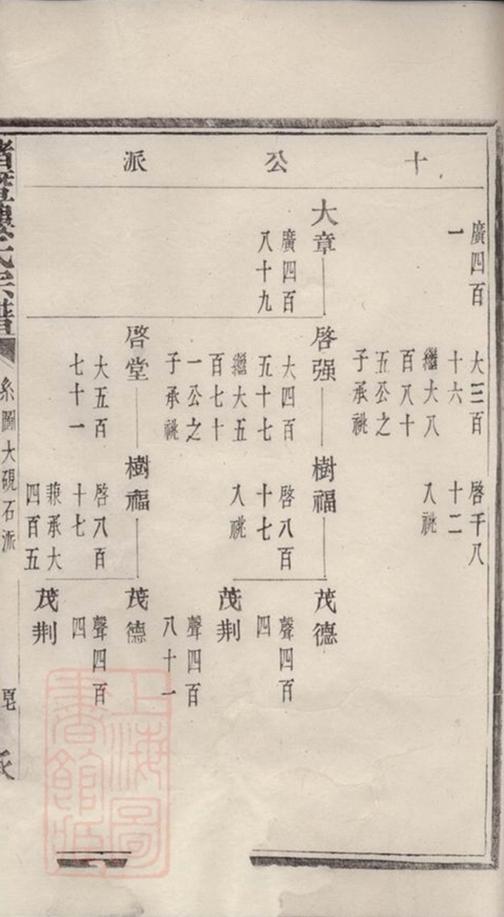 十公派
廣四百
一
大三百
十六
繼大八
百八十
五公之
子承祧
啓千八
十二
入祧
大章
廣四百
八十九
啓强
大四百
五十七
繼大五
百七十
一公之
子承祧
樹福
啓八百
十七
入祧
茂德
聲四百
四
茂荆
聲四百
八十一
啓堂
大五百
七十一
樹福
啓八百
十七
兼承大
四百五
茂德
聲四百
四
茂荆
諸暨㜈氏宗譜
系圖大硯石派
上海圖書館藏